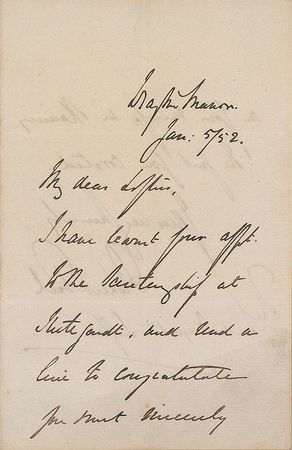 Drayton Manor.
Jan: 5/52.
My dear Loftus,
I have learnt your appt.
to the Secretaryship at
Stutgardt, and send a
line to congratulate
you most sincerely